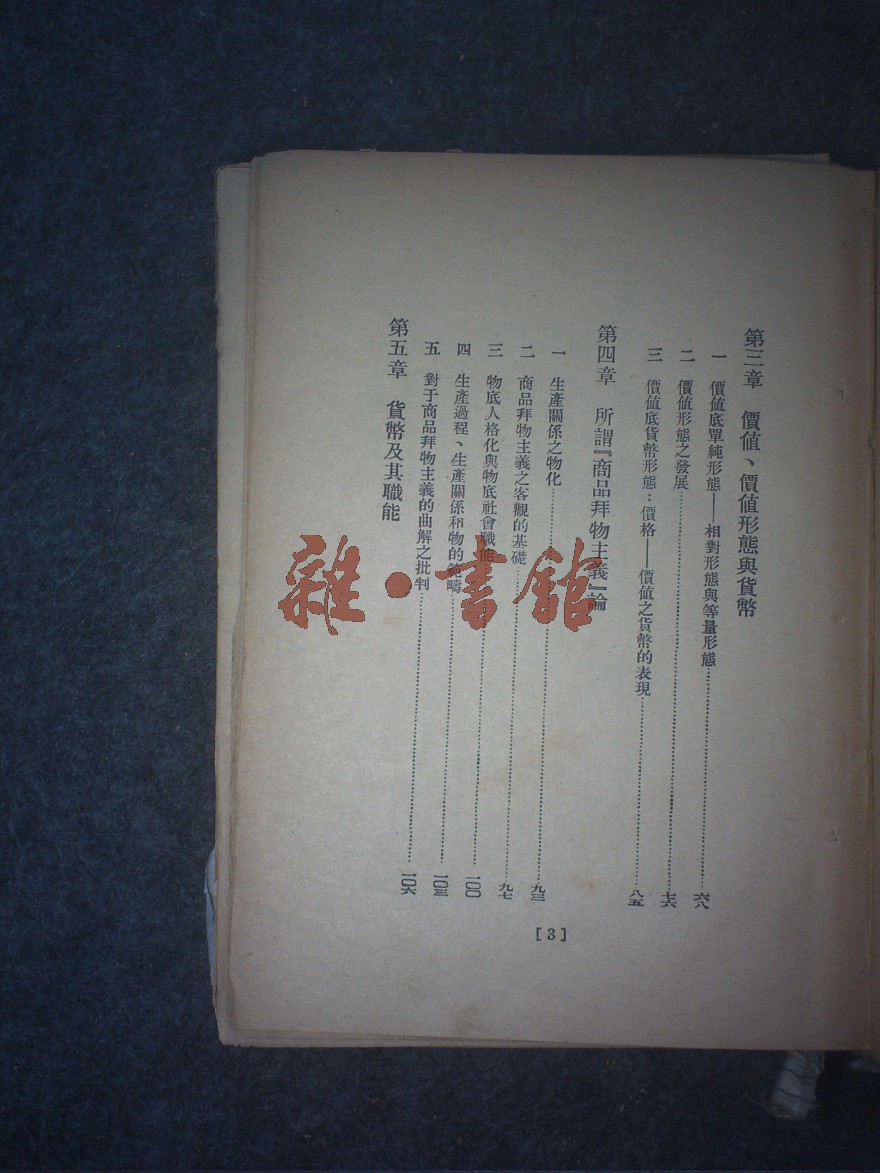 第三章 價值、價值形態與貨幣
一 價值底單純形態——相對形態與等量形態……六八
二 價值形態之發展……七六
三 價值底貨幣形態：價格——價值之貨幣的表現……八五
第四章 所謂『商品拜物主義』論
一 生產關係之物化……九三
二 商品拜物主義之客觀的基礎……九七
三 物底人格化與物底社會職能……一〇〇
四 生產過程、生產關係和物的範疇……一〇三
五 對于商品拜物主義的曲解之批判……一〇六
第五章 貨幣及其職能
[3]
雜·書館